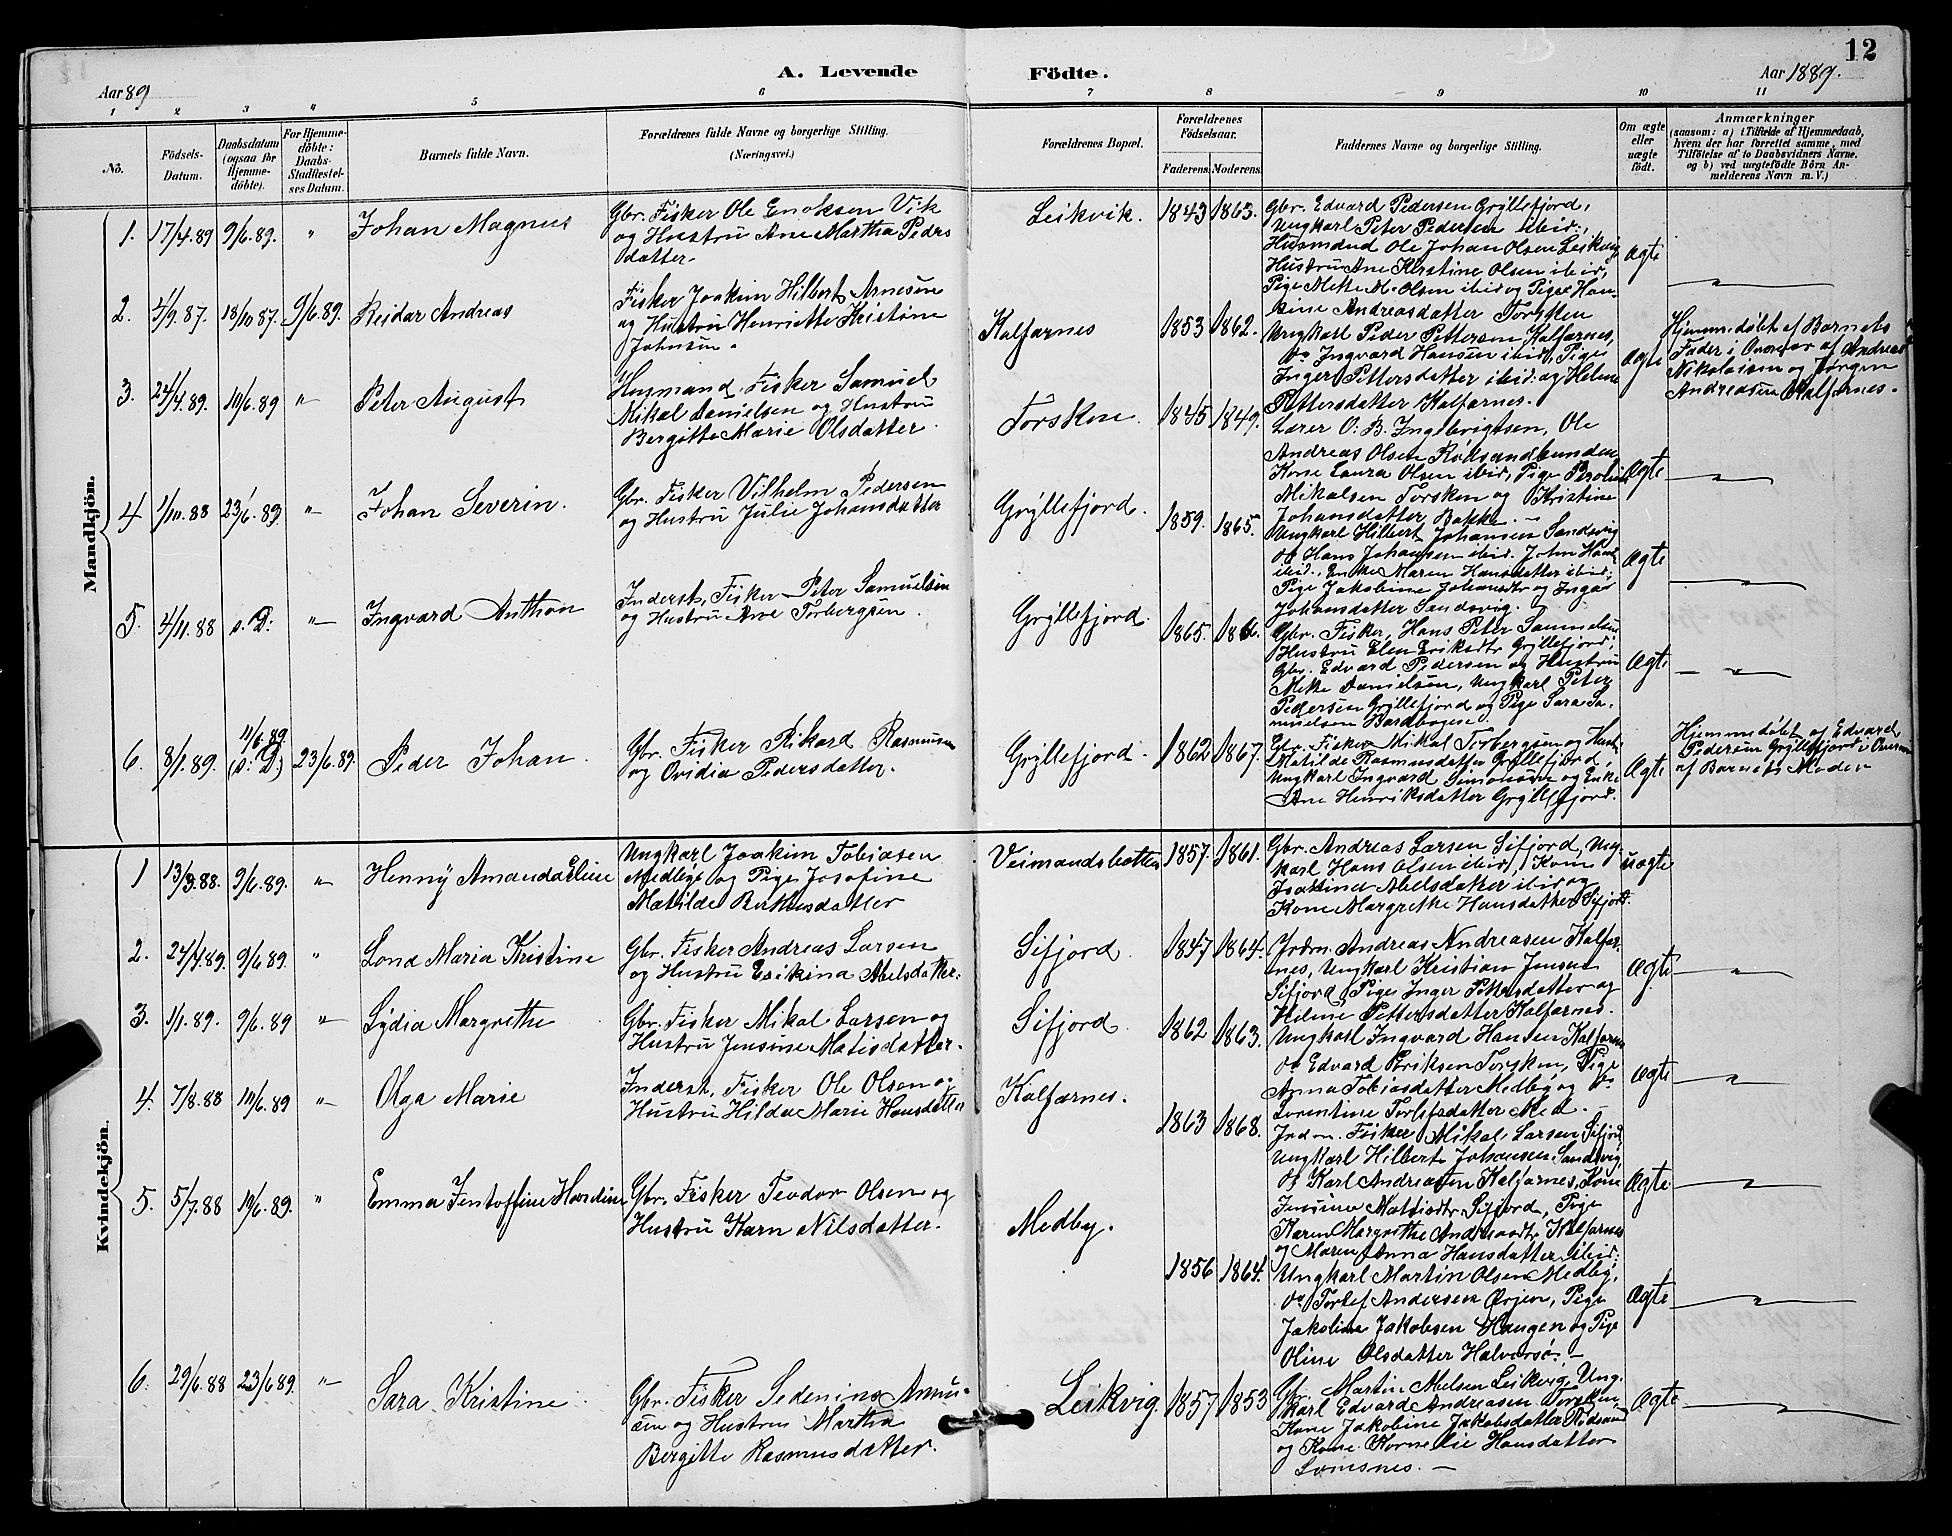 12
A. Levende Födte.
Aar 89
Aar 1889.
1 2 3 4 5 6 7 8 9 10 11
No.
Födsels-Datum.
Daabsdatum (ogsaa for Hjemme-döbte).
For Hjemme-döbte: Daabs-Stadfæstel-ses Datum.
Barnets fulde Navn.
Forældrenes fulde Navne og borgerlige Stilling. (Næringsvei.)
Forældrenes Bopæl.
Forældrenes Födselsaar.
Faderens. Moderens.
Faddernes Navne og borgerlige Stilling.
Om ægte eller uægte födt.
Anmærkninger
(saasom: a) i Tilfælde af Hjemmedaab,
hvem der har forrettet samme, med
Tilföielse af to Daabsvidners Navne.
og b) ved uægtefödte Börn An-
melderens Navn m. V.)
Mandkjön.
1. 17/4.89 9/6.89. " Johan Magnus
Gbr. Fisker Ole Enoksen Vik
og Hustru Ane Martha Peders
datter.
Leikvik. 1843 1863.
Gbr. Edvard Pedersen Gryllefjord,
Ungkarl Peter Pedersen ibid.,
Husmand Ole Johan Olsen Leikvig
Hustru Ane Kirstine Olsen ibid,
Pige Mette M. Olsen ibid og Pige Han-
sine Andreasdatter Torsken
Ægte
2. 4/9.87. 18/10 87. 9/6.89. Reidar Andreas
Fisker Joakim Hilbert Arnesen
og Hustru Henriette Kristine
Johnsen.
Kalfarnes 1853 1862.
Ungkarl Peder Pettersen Kalfarnes,
do Ingvard Hansen ibid, Pige
Inger Pettersdatter ibid. og Helene
Pettersdatter Kalfarnes.
Ægte
Hjemmedøbt af Barnets
Fader i Overvær af Andreas
Nikolaisen og Jørgen
Andreasen Kalfarnes.
3. 24/4.89. 10/6.89 " Peter August
Husmand, Fisker Samuel
Mikal Danielsen og Hustru
Bergitte Marie Olsdatter.
Torsken. 1845 1849.
Lærer O. B. Ingebrigtsen, Ole
Andreas Olsen Rødsandbunden
Kone Laura Olsen ibid, Pige
Mikalsen Torsken og Kristine
Johansdatter Bakke.
Ægte
4. 1/10.88 23/6.89 " Johan Severin.
Gbr. Fisker Vilhelm Pedersen
og Hustru Julie Johansdatter
Gryllefjord. 1859. 1865.
Ungkarl Hilbert Johansen Sandsvig
do Hans Johansen ibid. John Hans
ibid., Enke Maren Hansdatter ibid.,
Pige Jakobine Johansdtr og Inga
Johansdatter Sandsvig.
Ægte
5. 4/11.88 s. D: " Ingvard Anthon
Inderst, Fisker Peter Samuelsen
og Hustru Ane Torbergsen.
Gryllefjord. 1865. 1866.
Gbr. Fisker, Hans Peter Samuelsen
Hustru Elen Eriksdtr Gryllefjord,
Gbr. Edvard Pedersen og Hustru
Mette Danielsen, Ungkarl Peter
Pedersen Gryllefjord og Pige Sara Sa-
muelsen
Ægte
6. 8/1.89. 11/6.89 (s. D.) 23/6.89. Peder Johan.
Gbr. Fisker Rikard Rasmusen
og Ovidia Pedersdatter.
Gryllefjord. 1862 1867.
Gbr. Fisker Mikal Torbergsen og Hust.
Matilde Rasmusdatter Gryllefjord,
Ungkarl Ingvard Simonsen og Enke
Ane Henriksdatter Gryllefjord.
Ægte
Hjemmedøbt af Edvard
Pedersen Gryllefjord i Overvær
af Barnets Moder
Kvindekjön.
1 13/3.88. 9/6.89. " Henny Amanda Eline
Ungkarl Joakim Tobiasen
Medbye og Pige Josefine
Matilde
Veimandsbotten 1857. 1861.
Gbr. Andreas Larsen Sifjord, Ung
karl Hans Olsen ibid, Kone
Abelsdatter ibid og
Kone Margrethe Hansdatter Sifjord.
uægte
2. 24/4.89. 9/6.89. " Lona Maria Kristine
Gbr. Fisker Andreas Larsen
og Hustru Esikina Abelsdatter.
Sifjord. 1847 1864.
Jrdm. Andreas Andreasen Kalfar-
nes, Ungkarl Kristian Jensen
Sifjord, Pige Inger Pettersdatter og
Helene Pettersdatter Kalfarnes.
Ægte
3. 1/1.89. 9/6.89 " Lydia Margrethe
Gbr. Fisker Mikal Larsen og
Hustru Jensine Matisdatter.
Sifjord. 1862 1863.
Ungkarl Ingvard Hansen Kalfarnes
do Edvard Eriksen Torsken, Pige
Anna Tobiasdatter Medby og do
Lorentine Torlefsdatter Med.
Ægte
4. 7/8.88 10/6.89 " Olga Marie
Inderst, Fisker Ole Olsen og
Hustru Hilda Marie Hansdatter
Kalfarnes. 1863 1868.
Jrdm. Fisker Mikal Larsen Sifjord,
Ungkarl Hilbert Johansen Sandsvig,
do Karl Andreasen Kalfarnes, Kone
Jensine Matisdtr Sifjord, Pige
Karen Margrethe Andreasdtr Kalfarnes
og Maren Anna Hansdatter ibid.
Ægte
5. 5/7.88 10/6.89. " Emma Jentoffine Hardine
Gbr. Fisker Teodor Olsen og
Hustru Karn Nilsdatter.
Medby. 1856 1864.
Ungkarl Martin Olsen Medby,
do Torlef Andersen Ørjen, Pige
Jakobine Jakobsen Haugen og Pige
Oline Olsdatter Halvarsø.
Ægte
6. 29/6.88 23/6 89. " Sara Kristine
Gbr. Fisker Sedenius Asmu-
sen og Hustru Martha
Bergitte Rasmusdatter.
Leikvig. 1857 1853
Gbr. Martin Abelsen Leikvig, Ung.
karl Edvard Andreasen Torsken,
Kone Jakobine Jakobsdatter Rødsand
og Kone Kornelie Hansdatter
Lomsnes.
Ægte